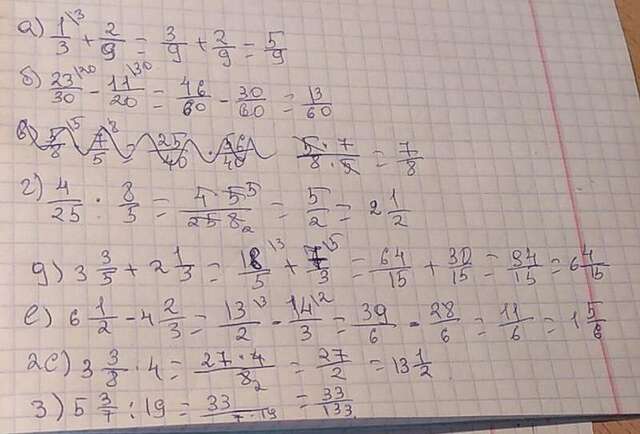 а) 1\3/3 + 2/9 = 3/9 + 2/9 = 5/9
б) 23\20/30 - 11\30/20 = 46/60 - 30/60 = 13/60
в) 5\5/8 · 7\8/5 = 25/40 · 56/40 5·7/8·5 = 7/8
г) 4/25 : 8/5 = 4·5 5/25 8 2 = 5/2 = 2 1/2
д) 3 3/5 + 2 1/3 = 18\3/5 + 7\5/3 = 64/15 + 30/15 = 94/15 = 6 4/15
е) 6 1/2 - 4 2/3 = 13\3/2 - 14\2/3 = 39/6 - 28/6 = 11/6 = 1 5/6
ж) 3 3/8 · 4 = 27·4/8 2 = 27/2 = 13 1/2
з) 5 3/7 : 19 = 33/7·19 = 33/133